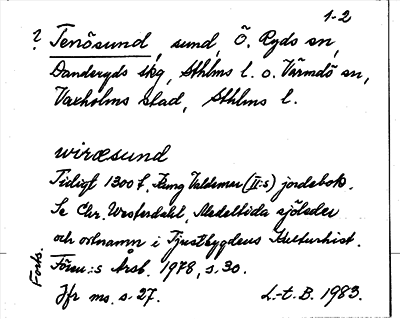 1-2
? Tenösund, sund, Ö. Ryds sn,
Danderyds skg, Sthlms l. o. Värmdö sn,
Vaxholms stad, Sthlms l.
wiræsund
Tidigt 1300 t, Kung Valdemars (II:s) jordebok.
Se Chr. Westerdahl, Medeltida sjöleder
och ortnamn i Tjustbygdens Kulturhist.
Fören:s Årsb. 1978, s. 30.
Jfr ms. s. 27. L-t. B. 1983.
Forts.